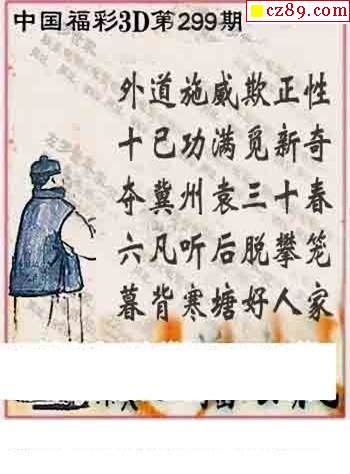 cz89.com
中国福彩3D第299期
外道施威欺正性
十已功满觅新奇
夺冀州袁三十春
六凡听后脱攀笼
暮背寒塘好人家